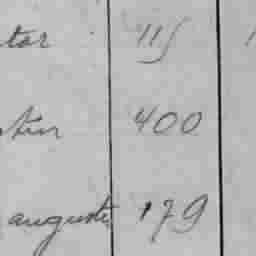 tor 115
tin 400
auguste 179